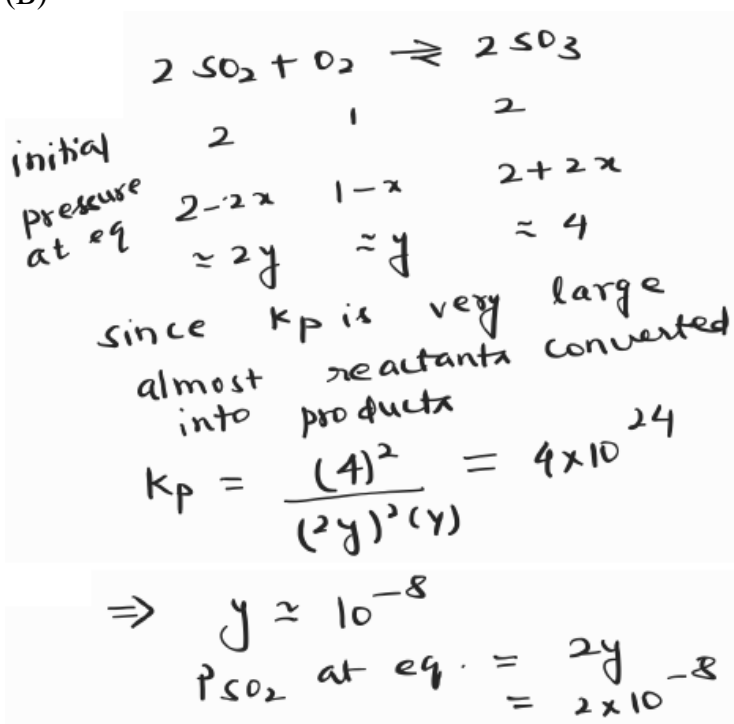 (B)
2 SO₂ + O₂ ⇌ 2 SO3
initial 2 1 2
pressure at eq 2-2x 1-x 2+2x
≈ 2y ≈ y ≈ 4
since Kp is very large
almost reactants converted
into products
Kp = (4)² / (2y)²(y) = 4×10²⁴
⇒ y ≈ 10⁻⁸
PSO₂ at eq. = 2y
= 2×10⁻⁸